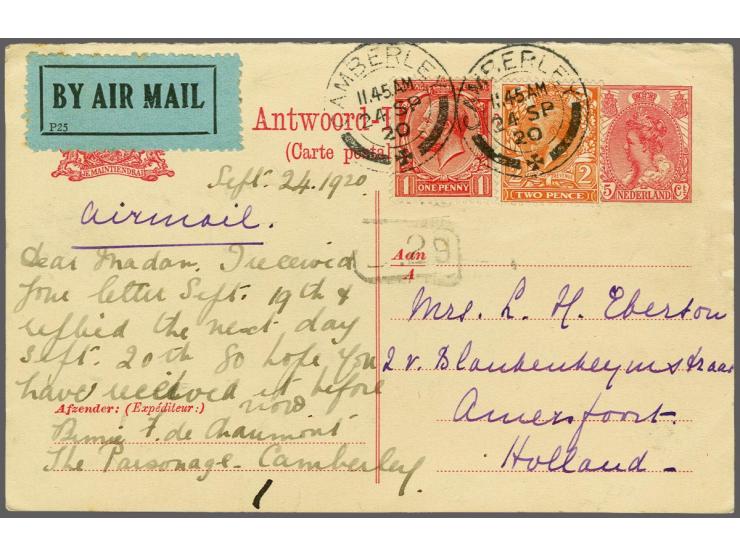 BY AIR MAIL
P25
JE MAINTIENDRAI
Antwoord-
(Carte postal
CAMBERLEY
11.45 AM
24 SP
20
CAMBERLEY
11.45 AM
24 SP
20
1 ONE PENNY 1
2
TWO PENCE
5 Ct
NEDERLAND
Sept. 24. 1920
Airmail.
Dear Madam, I received
your letter Sept. 19th &
replied the next day
Sept. 20th So hope you
have received it before
now
Afzender: (Expéditeur:)
F. de Chaumont
The Parsonage - Camberley
1
29
Aan
A
Mrs. L. H. Eberson
2 v. Blankenheymstraat
Amersfoort.
Holland_